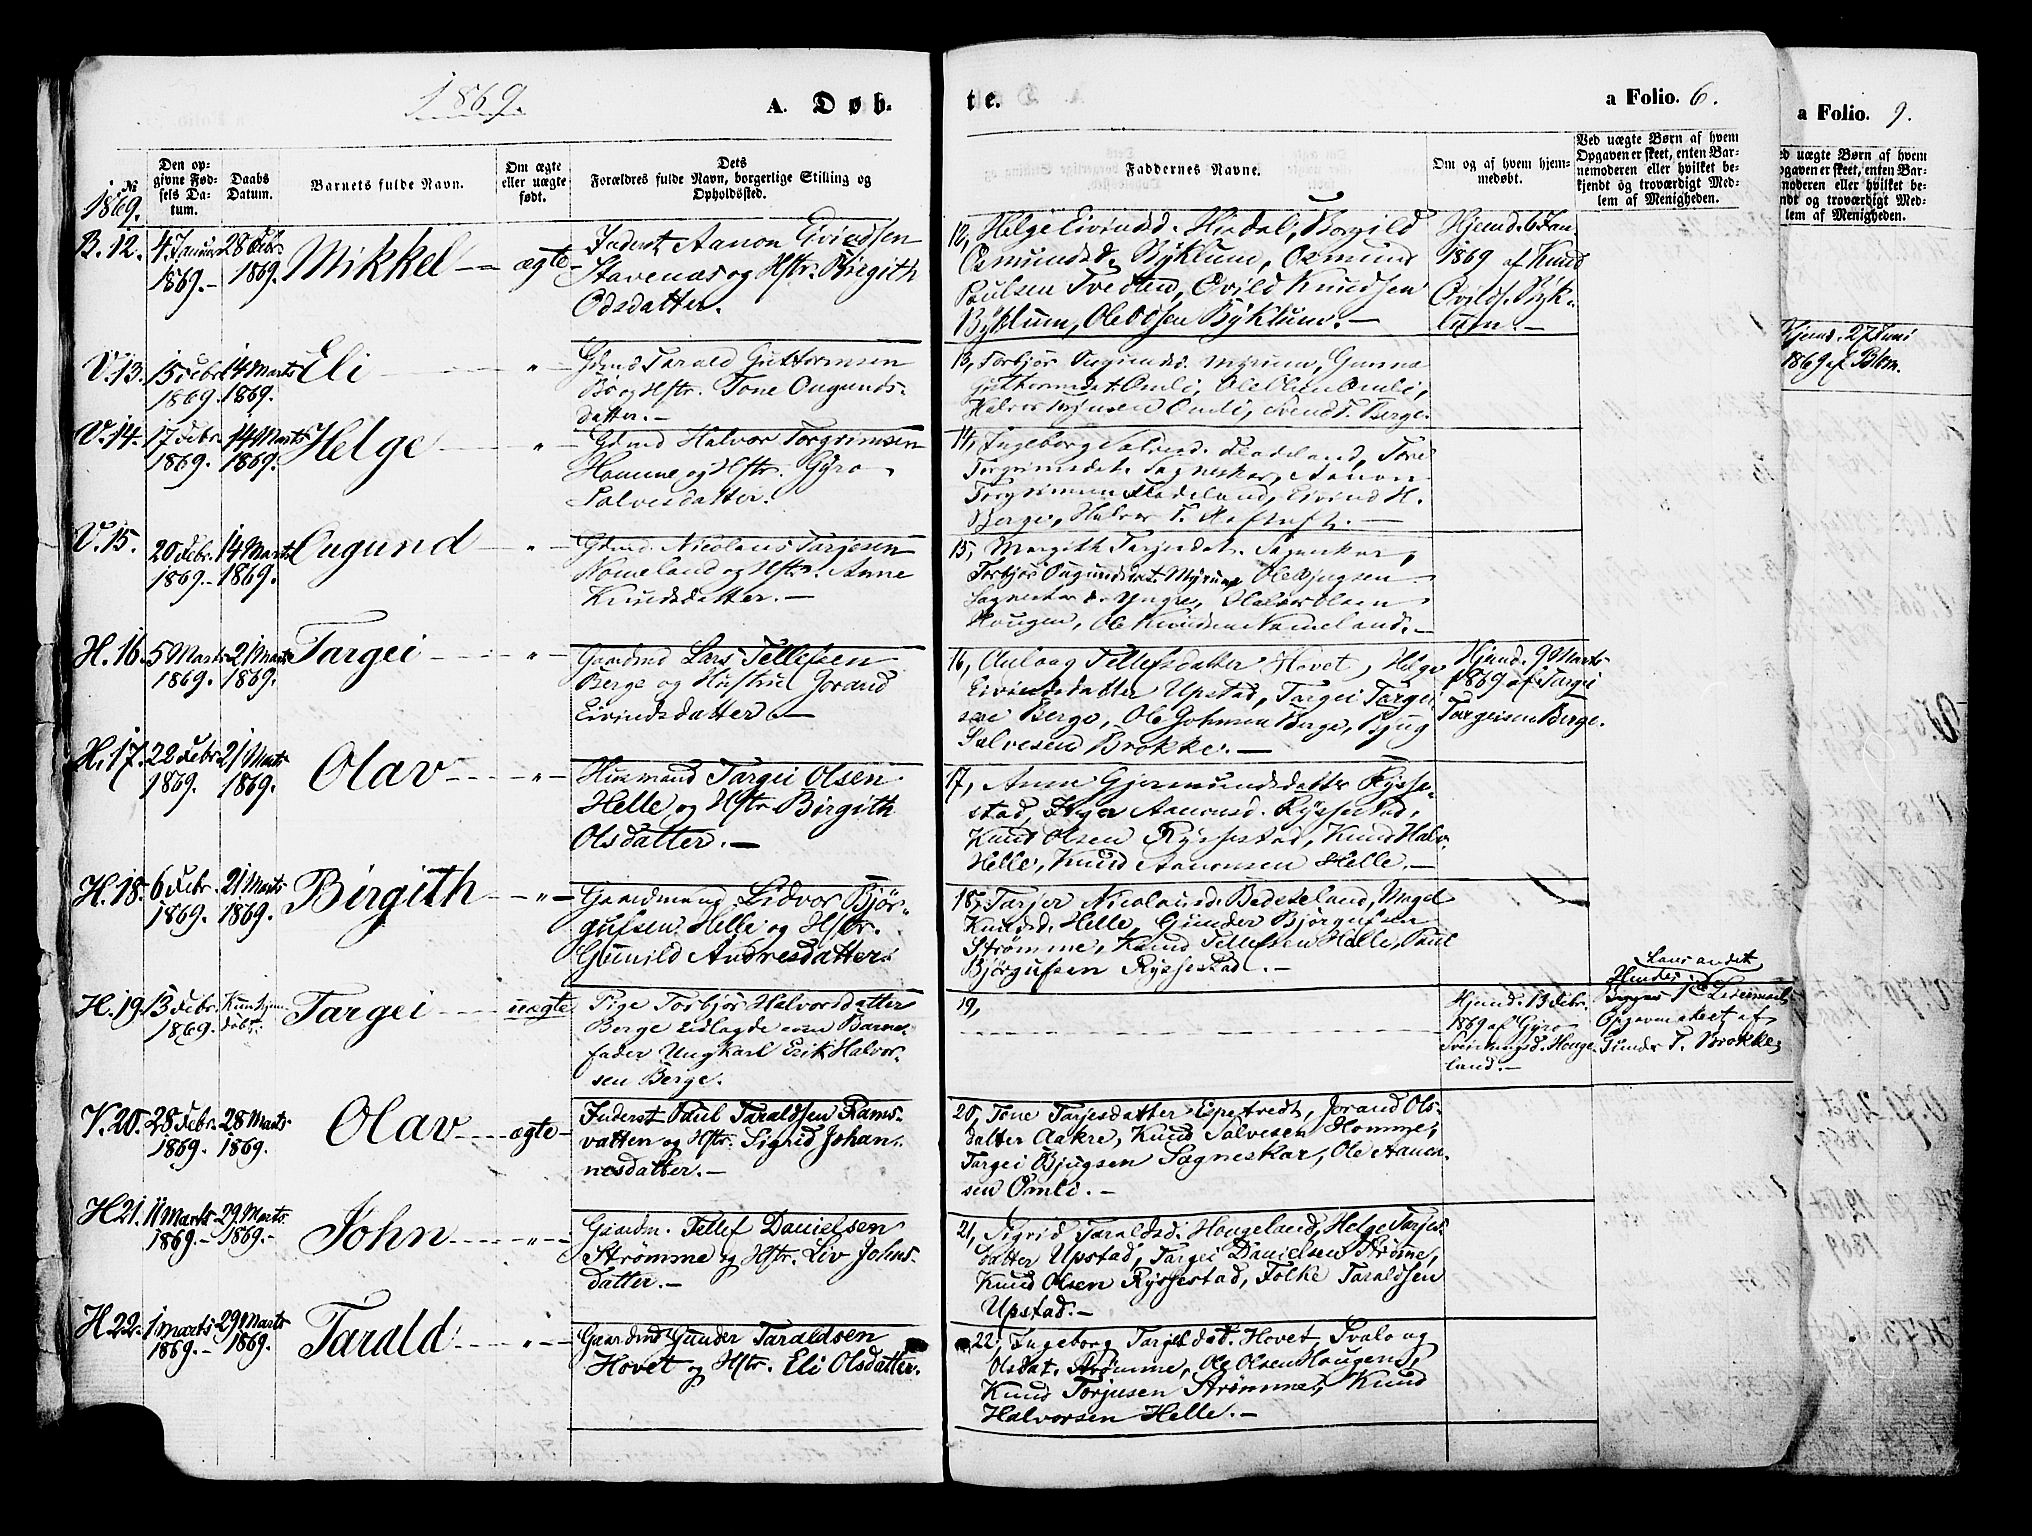 1869.
A. Døb-
te.
a Folio. 6.
a Folio. 9.
№
1869.
Den op-
givne Fød-
sels Da-
tum.
Daabs
Datum.
Barnets fulde Navn.
Om ægte
eller uægte
født.
Dets
Forældres fulde Navn, borgerlige Stilling og
Opholdssted.
Faddernes Navne.
Om og af hvem hjem-
medøbt.
Ved uægte Børn af hvem
Opgaven er skeet, enten Bar-
nemoderen eller hvilket be-
kjendt og troværdigt Med-
lem af Menigheden.
B. 12.
4 Januar
1869.-
28 Febr
1869.
Mikkel
ægte
Inderst Aanon Eivindsen
Stavenæs og Hstr. Birgith
Odsdatter.
12, Helge Eivindsd. Hisdal, Borgild
Osmundsd. Byklum, Osmund
Poulsen Tvedten, Øvild Knudsen
Byklum, Ole Olsen Byklum.-
Hjemd. 6 Jan
1869 af Knud
Øvilds. Byk-
lum.-
V. 13.
15 Febr
1869
14 Marts
1869.
Eli
"
Gdmd Tarald Guttormsen
Bø og Hstr. Tone Ougunds-
datter.-
13, Torbjør Ougundsd. Myrum, Gunne
Guthormsdat. Omli, Ole Olsen Omli,
Halvor Torjusen Omli, Svend T. Berge.
V. 14.
17 Febr
1869.
14 Marts
1869.
Helge
"
Gdmd Halvor Torgrimsen
Homme og Hstr. Gyro
Salvesdatter.
14, Ingeborg Salvesd. Fladeland, Tone
Torgrimsdat. Sagneskar, Aanon
Torgrimsen Fladeland, Eivind H.
Berge, Halvor T.
V. 15.
20 Febr.
1869.-
14 Marts
1869.
Ougund
"
Gdmd. Nicolaus Tarjesen
Nomeland og Hstr. Anne
Knudsdatter.-
15, Margith Tarjesdat. Sagneskar,
Torbjør Ougundsdat. Myrum, Ole Bjugsen
Sagneskar d. Yngre, Halvor Olsen
Hougen, Ole Knudsen Nomeland.-
H. 16.
5 Marts
1869.
21 Marts
1869.
Targei
"
Gaardmd Lars Tellefsen
Berge og Hustrue Jorand
Eivindsdatter.-
16, Aulaag Tellefsdatter Hovet, Helge
Eivindsdatter Upstad, Targei Targei-
sen Berge, Ole Johnsen Berge, Bjug
Salvesen Brokke.-
Hjemd. 9 Marts
1869 af Targei
Targeisen Berge.
H. 17.
22 Febr
1869.
21 Marts
1869.
Olav
"
Husmand Targei Olsen
Helle og Hstr. Birgith
Olsdatter.-
17, Anne Gjermundsdatter Rysse-
stad, Aanonsd. Ryssestad,
Knud Olsen Ryssestad, Knud Halv.
Helle, Knud Aanonsen Helle.-
H. 18.
6 Febr.
1869.
21 Marts
1869.
Birgith
"
Gaardmand Lidvor Bjør-
gufsen Helle og Hstr.
Gunild Andresdatter.
18, Tarjer Nicolausd. Besteland, Margit
Knudsd. Helle, Gunder Bjørgufsen
Strømme, Knud Tellefsen Helle, Paul
Bjørgufsen Ryssestad.-
H. 19.
13 Febr.
1869.
Kun hjem
døbt.
Targei
uægte
Pige Torbjør Halvorsdatter
Berge udlagde som Barne-
fader Ungkarl Erik Halvor-
sen Berge.
19,
Hjemd. 13 Febr.
1869 af Gyro
Sveinungsd. Houge-
land.-
Hans andet
Hendes
Begges 1ste Leiermaal
Opgav møtet af
Gunder T. Brokke.
V. 20.
28 Febr
1869.
28 Marts
1869.
Olav
ægte
Inderst Paul Taraldsen Rams-
vatten og Hstr. Sigrid Johan-
nesdatter.-
20, Tone Tarjesdatter Espetvedt, Jorand Ols-
datter Aakre, Knud Salvesen Homme,
Targei Bjugsen Sagneskar, Ole Aanon-
sen Omli.-
H 21.
11 Marts
1869.-
29 Marts
1869.-
John
"
Gaardm. Tellef Danielsen
Strømme og Hstr. Liv Johns-
datter.-
21, Sigrid Taraldsd. Hougeland, Helge Tarjes-
datter Upstad, Targei Danielsen Strøme,
Knud Olsen Ryssestad, Folke Taraldsen
Upstad.-
H 22.
1 Marts
1869.-
29 Marts
1869.
Tarald
"
Gaardmd Gunder Taraldsen
Hovet og Hstr. Eli Olsdatter.
22, Ingeborg Targeisdat. Hovet, Svalo og
Olsdat. Strømme, Ole Olsen Hougen,
Knud Torjusen Strømme, Knud
Halvorsen Helle.-
Hjemd. 27 Juni
1869 af Blom.